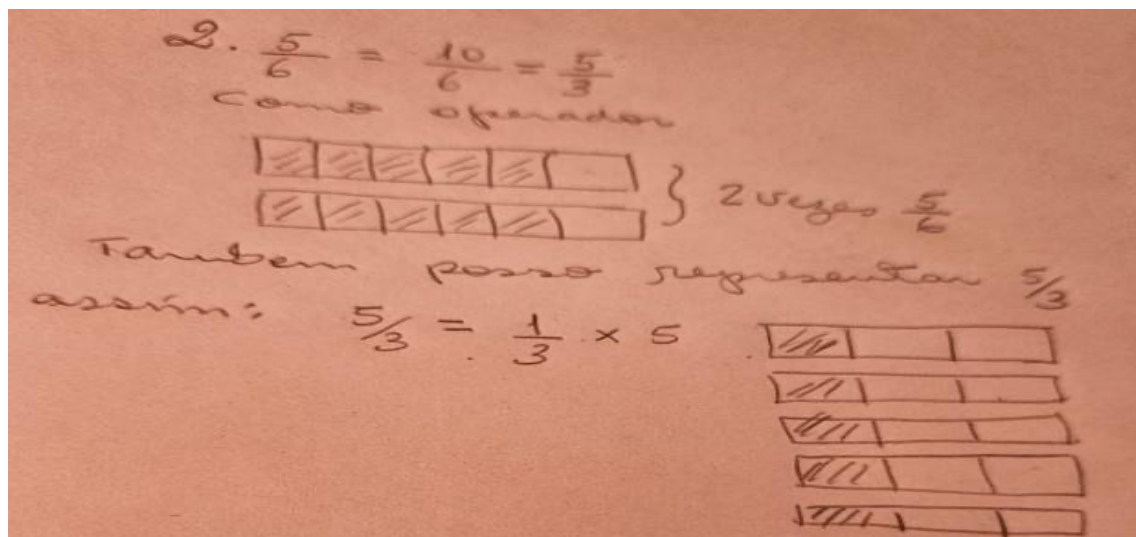 2. 5/6 = 10/6 = 5/3
como operador
} 2 vezes 5/6
Tambem posso representar 5/3
assim: 5/3 = 1/3 × 5